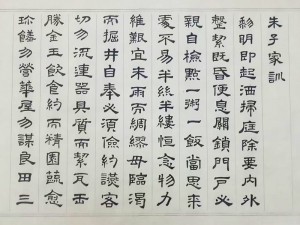 朱子家訓
黎明即起洒掃庭除要内外
整絜既昏便息關鎖門戶必
親自檢點一粥一飯當思來
處不易半絲半縷恒念物力
維艱宜未雨而綢繆毋臨渴
而掘井自奉必須儉約讌客
切勿流連器具質而絜瓦缶
勝金玉飲食約而精園蔬愈
珍饈勿營華屋勿謀良田三